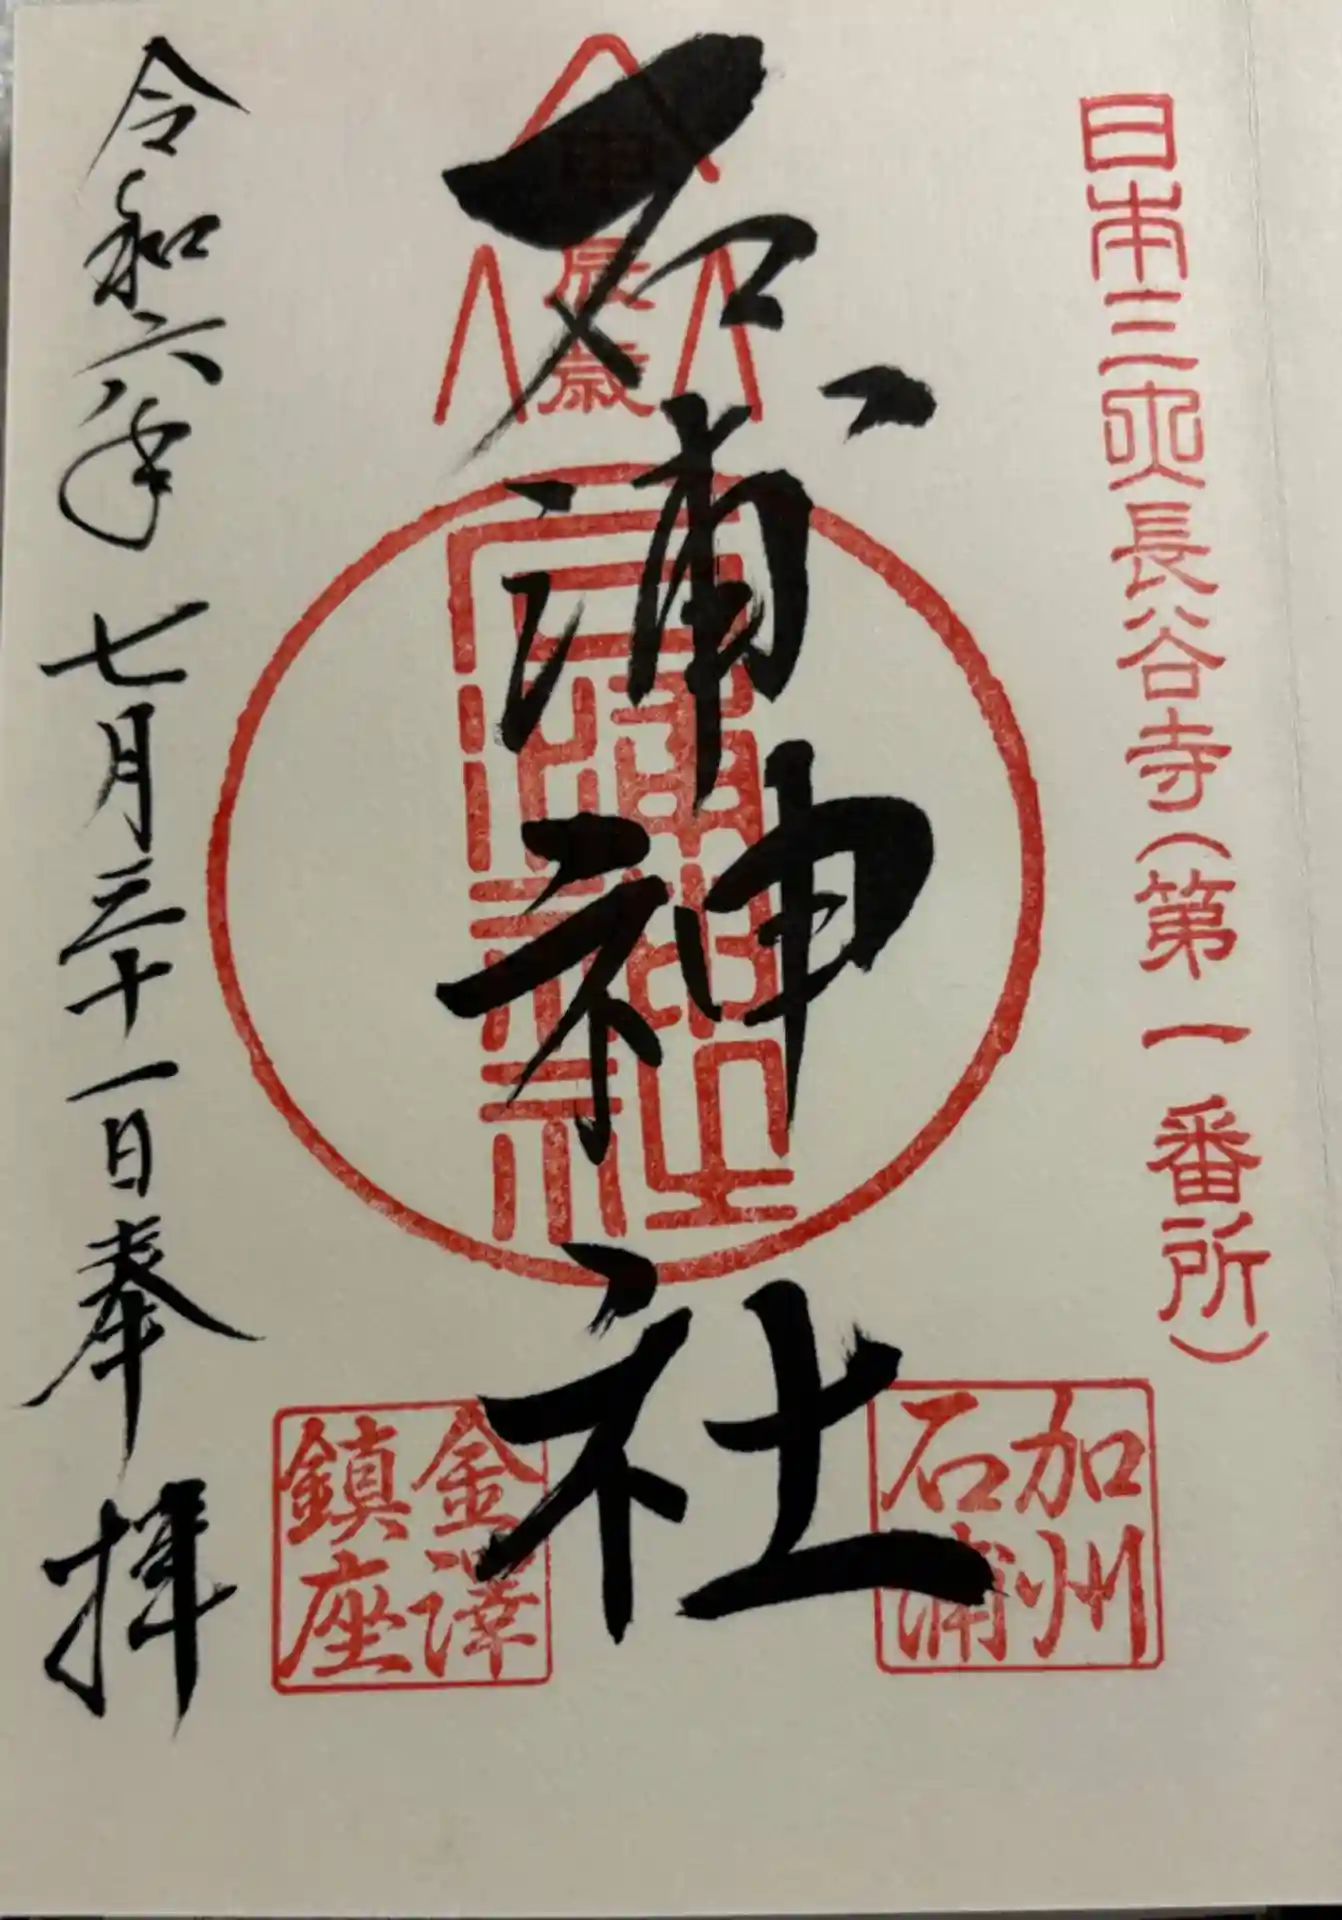 日本三大長谷寺(第一番所)
加州
石浦
石浦神社
辰歳
石浦神社
金澤
鎮座
令和六年 七月三十一日奉拝